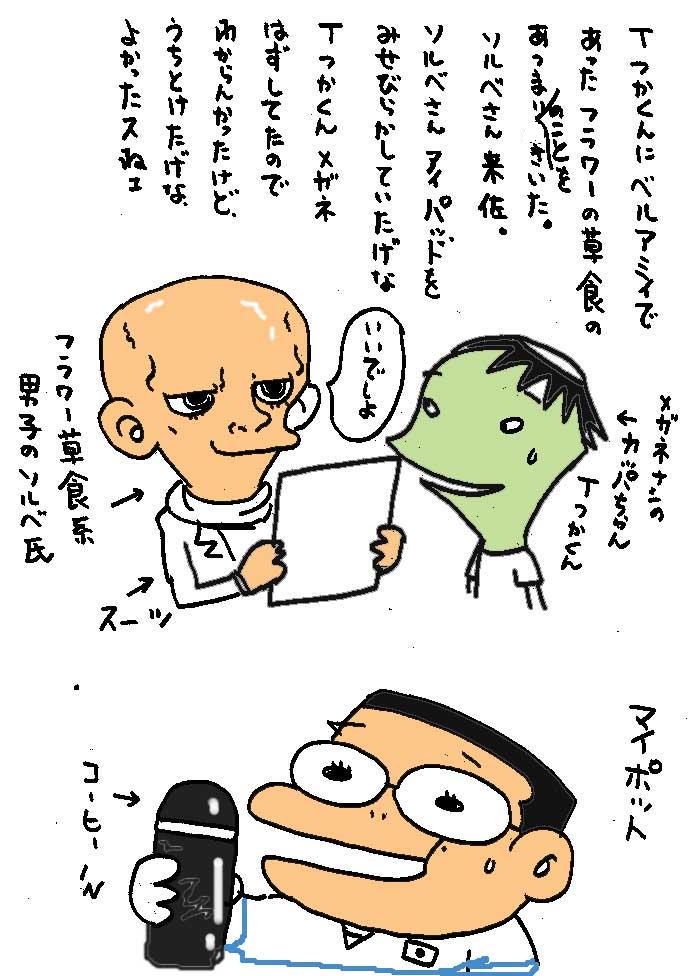 Tつかくんにベルアミィで
あったフラワーの草食の
あつまりのことを
きいた。
ソルベさん来佐。
ソルベさんアイパッドを
みせびらかしていたげな
Tつかくんメガネ
はずしてたので
わからんかったけど、
うちとけたげな、
よかったスねェ
いいでしょ
メガネナシの
←カパちゃん
Tつかくん
フラワー草食系
男子のソルベ氏
→
スーツ
→
マイポット
コーヒーIN
→